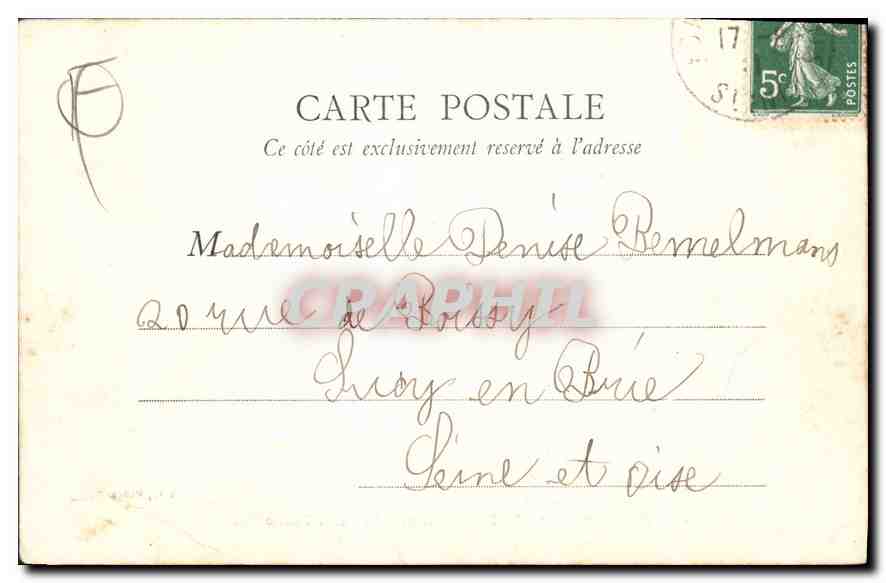 17
5c
POSTES
CARTE POSTALE
Ce côté est exclusivement reservé à l'adresse
Mademoiselle Denise Bemelmans
CPARHIL
20 rue de Boissy
Sucy en Brie
Seine et Oise